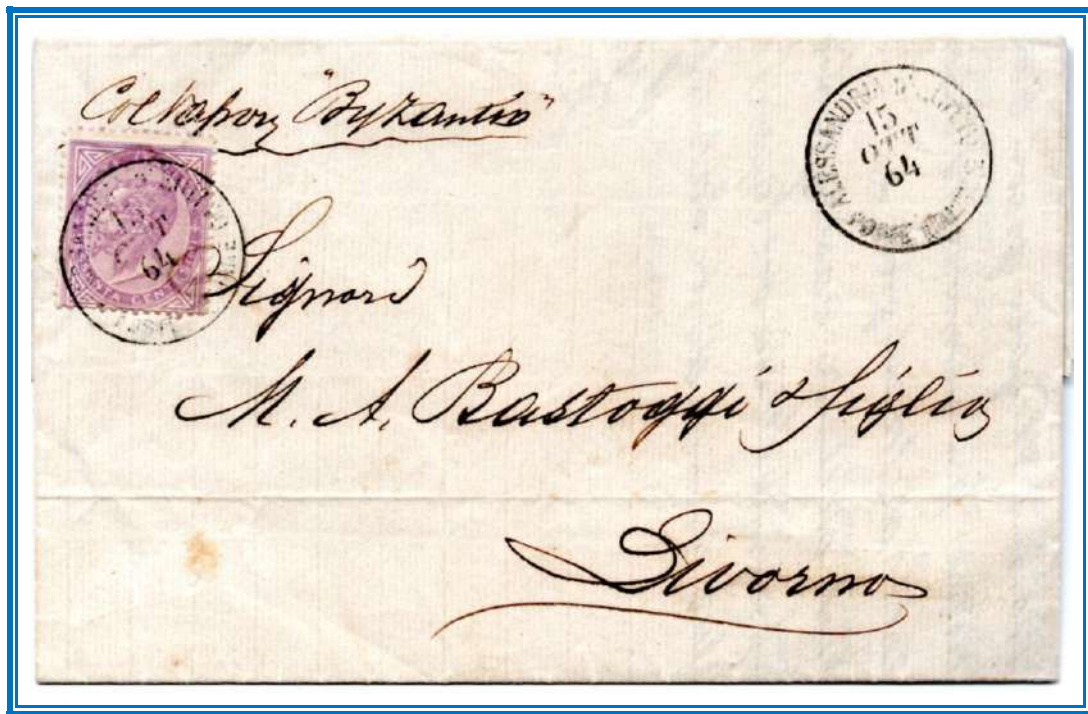 Col Vapor "Byzantio"
ALESSANDRIA D'EGITTO
POSTE ITALIANE
15
OTT
64
15
OTT
64
Signori
M. A. Bastoggi & figlio
Livorno